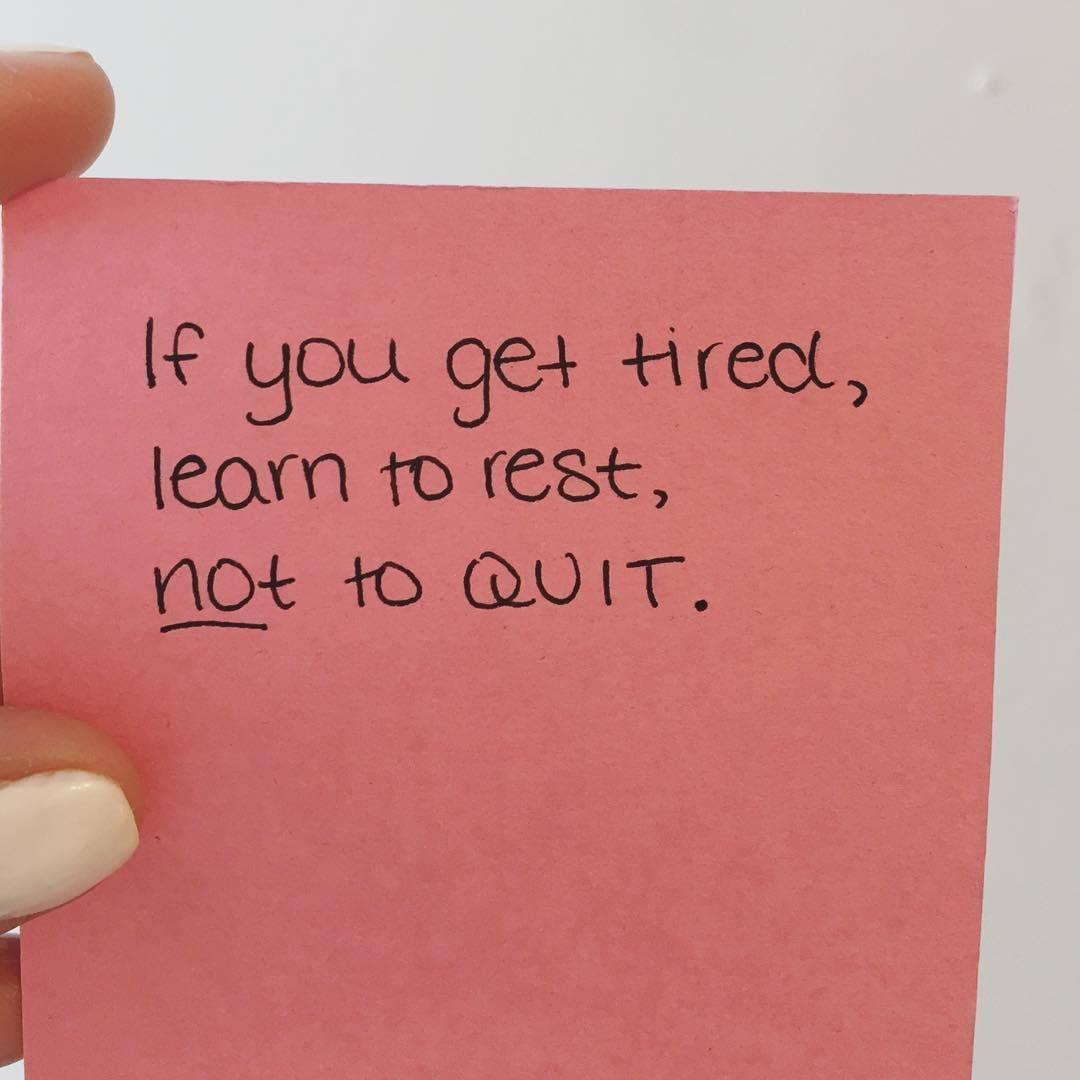 If you get tired,
learn to rest,
not to QUIT.